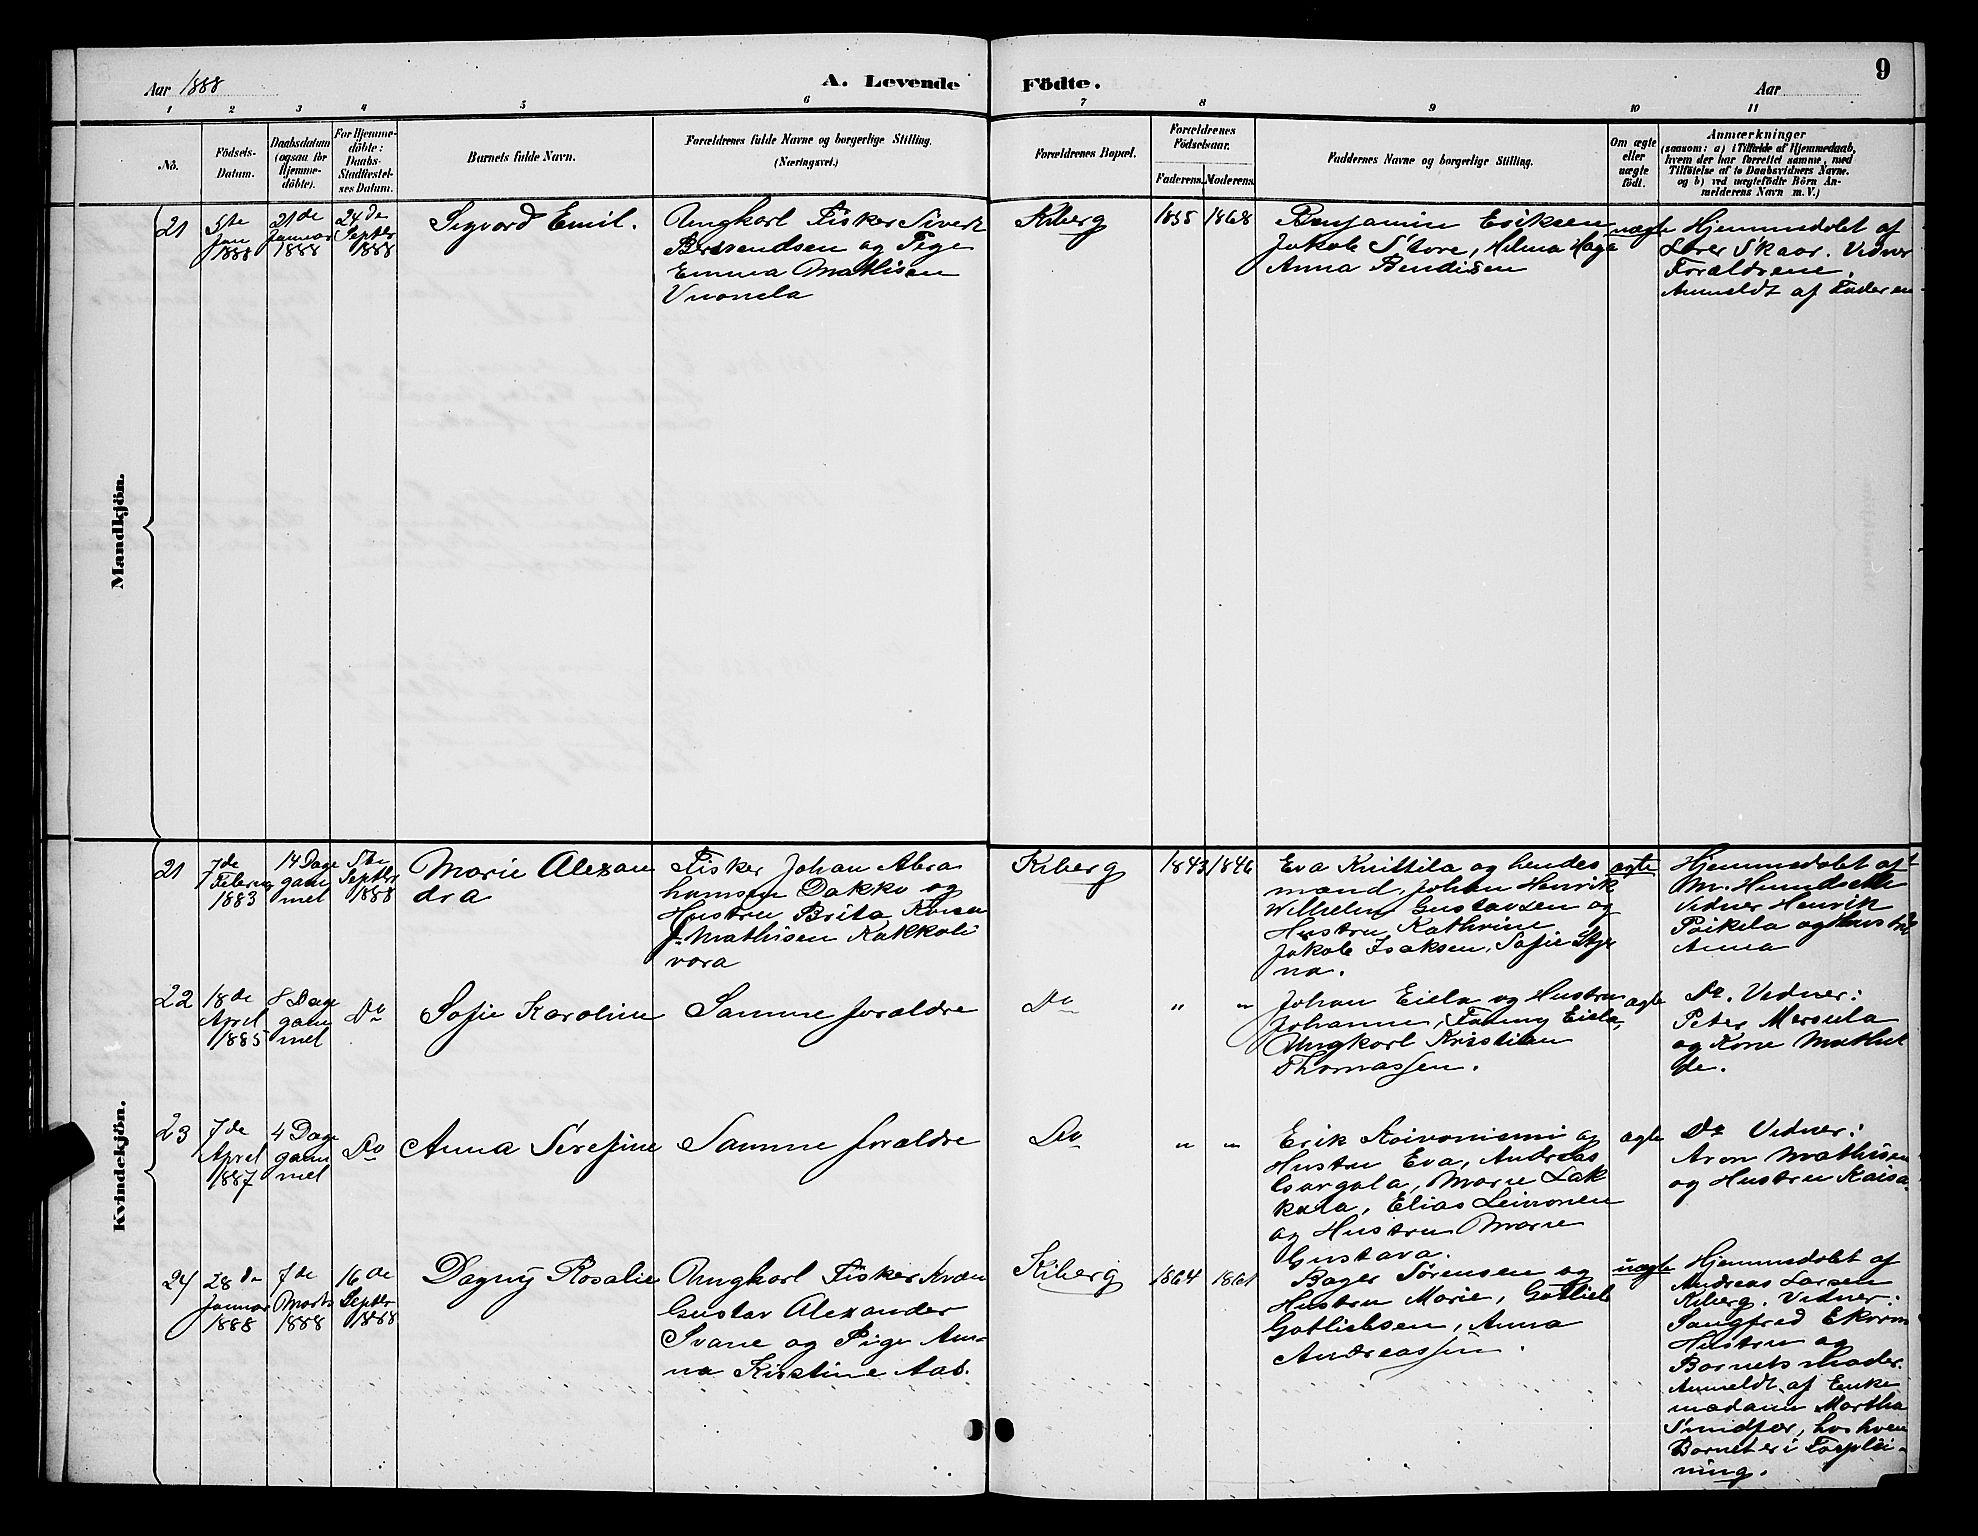 Aar 1888
A. Levende
Födte.
Aar
9
1 2 3 4 5 6 7 8 9 10 11
Nô.
Födsels-
Datum.
Daabsdatum
(ogsaa for
Hjemme-
döbte).
For Hjemme-
döbte:
Daabs-
Stadfæstel-
ses Datum.
Barnets fulde Navn.
Forældrenes fulde Navne og borgerlige Stilling.
(Næringsvei.)
Forældrenes Bopæl.
Forældrenes
Födselsaar.
Faderens. Moderens.
Faddernes Navne og borgerlige Stilling.
Om ægte
eller
uægte
födt.
Anmærkninger
(saasom: a) i Tilfælde af Hjemmedaab,
hvem der har forrettet samme, med
Tilföielse af to Daabsvidners Navne.
og b) ved uægtefödte Börn An-
melderens Navn m. V.)
Mandkjön.
21
5te
Jan
1888
21de
Januar
1888
24de
Septbr
1888
Sigvard Emil.
Ungkarl Fisker Sivert
Berendsen og Pige
Emma Mathisen
Vuonela
Kiberg
1855
1868
Benjamin Eriksen
Jakob Store, Helena Haga
Anna Bendigsen
uægte
Hjemmedøbt af
Lærer Skaar. Vidner
Forældrene.
Anmeldt af Faderen
Kvindekjön.
21
7de
Februar
1883
14 Dage
gam
mel
5te
Septbr
1888
Marie Alexan
dra
Fisker Johan Abra
hamsen Dakko og
Hustru Brita Kaisa
J. Mathisen Kakkoli
vara
Kiberg
1843
1846
Eva Knittila og hendes
mand, Johan Henrik
Wilhelm Gustavsen og
Hustru Kathrine,
Jakob Isaksen, Sofie Sty
na.
ægte
Hjemmedøbt af
M. Hundseth
Vidner Henrik
Poikela og Hustru
Anna
22
18de
April
1885
8 Dage
gam
mel
Do
Sofie Karoline
Samme forældre
Do
" "
Johan Eiela og Hustru
Johanne, Fanny Eiela,
Ungkarl Kristian
Thomassen.
ægte
Do. Vidner:
Peter Mersula
og Kone Mathil
de.
23
7de
April
1887
4 Dage
gam
mel
Do
Anna Serefine
Samme forældre
Do
" "
Erik Koivoniemi og
Hustru Eva, Andreas
Isargala, Marie Lak
kala, Elias Leinonen
og Hustru Marie
Gustava.
ægte
Do Vidner:
Aron Mathisen
og Hustru Kaisa.
24
28de
Januar
1888
7de
Marts
1888
16de
Septbr
1888
Dagny Rosalie
Ungkarl Fisker Kvæn
Gustav Alexander
Svane og Pige An-
na Kirstine Aas.
Kiberg
1864
1861
Bager Sørensen og
Hustru Marie, Gotlieb
Gotliebsen, Anna
Andreassen.
uægte
Hjemmedøbt af
Andreas Larsen
Kiberg. Vidner:
Sangfred Ekrem
Hustru og
Barnets moder.
Anmeldt af Enke
madam Martha
Smidfær, hos hvem
Barnet er i Forplei-
ning.